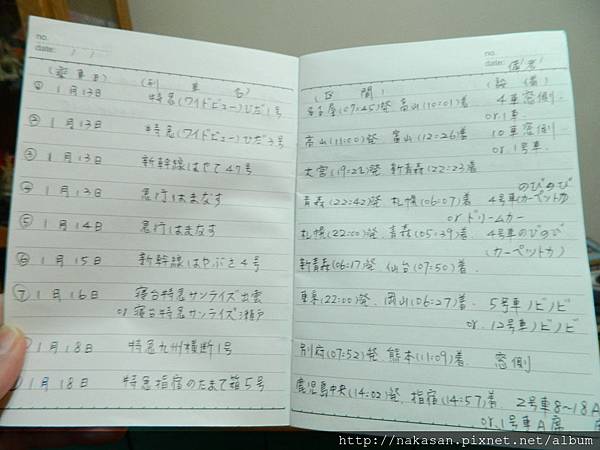 no.
date:
(乘車日) (列車名)
① 1月13日 特急(ワイドビュー)ひだ1号
② 1月13日 特急(ワイドビュー)ひだ3号
③ 1月13日 新幹線はやて47号
④ 1月13日 急行はまなす
⑤ 1月14日 急行はまなす
⑥ 1月15日 新幹線はやぶさ4号
⑦ 1月16日 寝台特急サンライズ出雲
or 寝台特急サンライズ瀬戸
1月18日 特急九州横断1号
1月18日 特急指宿のたまて箱5号
no.
date: 備考
(区間) (設備)
名古屋(07:45)発 高山(10:01)着 4車窓側
or 1車
高山(11:00)発 富山(12:26)着 10車窓側
or 1号車
大宮(19:22)発 新青森(22:23)着
のびのび
青森(22:42)発 札幌(06:07)着 4号車(カーペットカ)
or ドリームカー
札幌(22:00)発 青森(05:39)着 4号車のびのび
(カーペットカ)
新青森(06:17)発 仙台(07:50)着
東京(22:00)発 岡山(06:27)着 5号車ノビノビ
or 12号車ノビノビ
別府(07:52)発 熊本(11:09)着 窓側
鹿児島中央(14:02)発 指宿(14:57)着 2号車8~18A
or 1号車A席
http://nakasan.pixnet.net/album